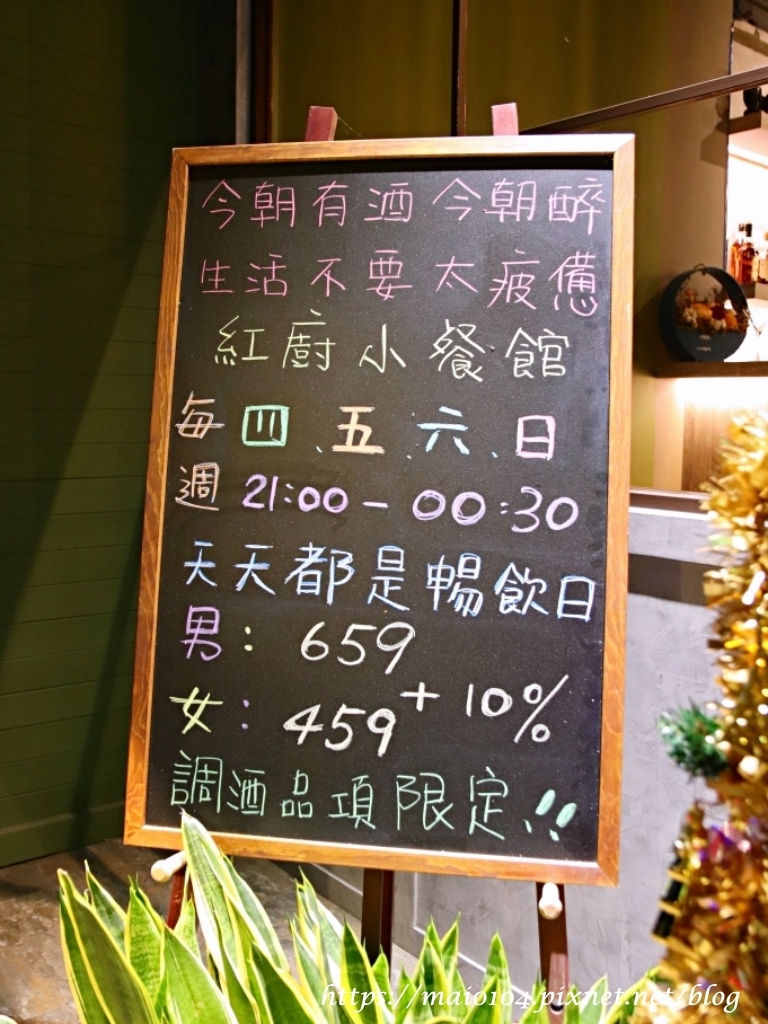 今朝有酒 今朝醉
生活不要太疲憊
紅廚小餐館
每四、五、六、日
週 21:00 - 00:30
天天都是暢飲日
男: 659
女: 459 + 10%
調酒品項限定!!
https://maio104.pixnet.net/blog